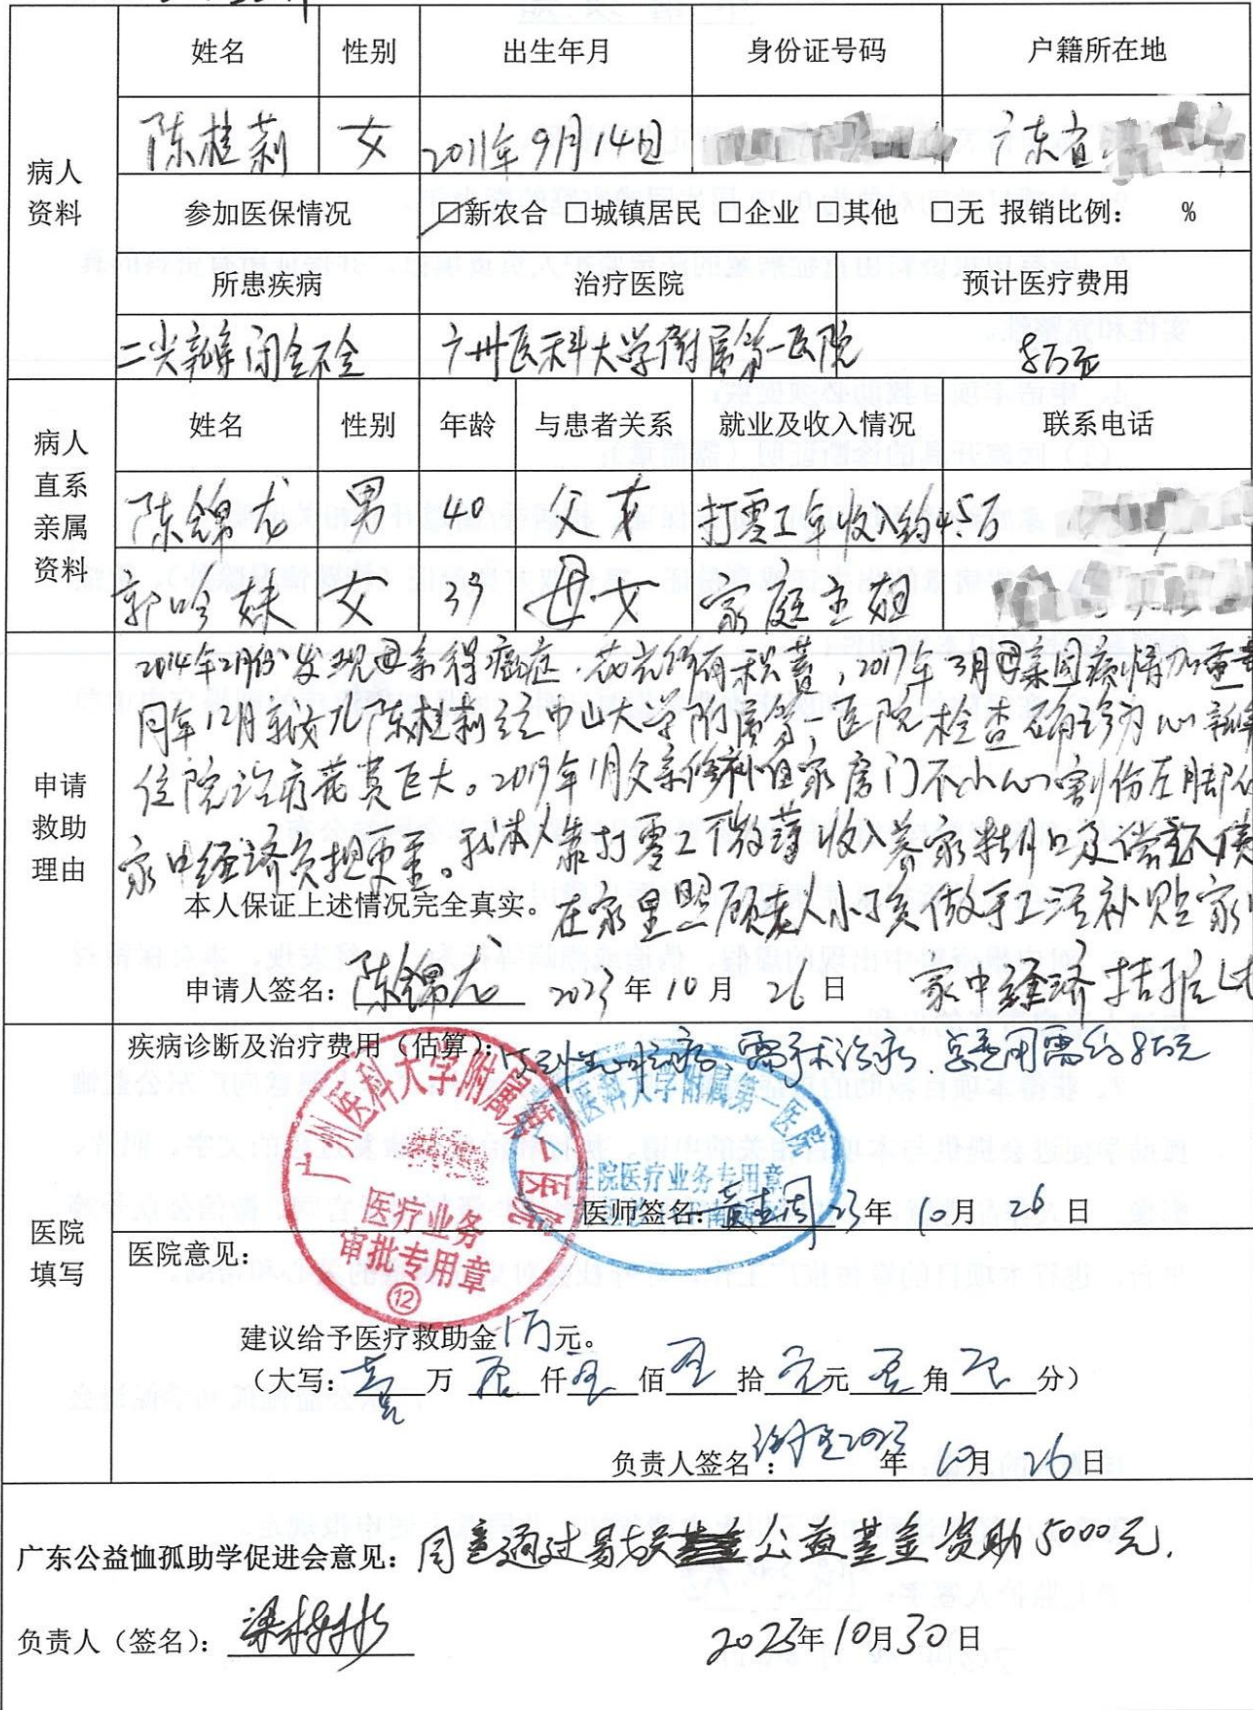 姓名 性别 出生年月 身份证号码 户籍所在地
病人资料
陈桂莉 女 2011年9月14日 广东省
参加医保情况 ☑新农合 □城镇居民 □企业 □其他 □无 报销比例： %
所患疾病 治疗医院 预计医疗费用
二尖瓣闭合不全 广州医科大学附属第一医院 8万元
病人直系亲属资料
姓名 性别 年龄 与患者关系 就业及收入情况 联系电话
陈锦龙 男 40 父女 打零工年收入约4.5万
郭吟妹 女 39 母女 家庭主妇
申请救助理由
2014年2月份发现母亲得癌症，花光所有积蓄，2017年3月母亲因病情加重
同年12月我女儿陈桂莉经中山大学附属第一医院检查确诊为心瓣
住院治疗花费巨大。2019年1月父亲修补自家房门不小心割伤左脚
家中经济负担更重。我本人靠打零工微薄收入养家糊口及偿还债
本人保证上述情况完全真实。 在家里照顾老人小孩做手工活补贴家
申请人签名：陈锦龙 2023年10月26日 家中经济拮据
医院填写
疾病诊断及治疗费用（估算）： 心脏病，需手术治疗，总费用需约8万元
广州医科大学附属第一医院
医疗业务
审批专用章
⑫
医科大学附属第一医院
住院医疗业务专用章
医师签名： 23年10月26日
医院意见：
建议给予医疗救助金1万元。
（大写：壹万零仟零佰零拾零元零角零分）
负责人签名： 2023年10月26日
广东公益恤孤助学促进会意见：同意通过 公益基金资助5000元.
负责人（签名）：
2023年10月30日